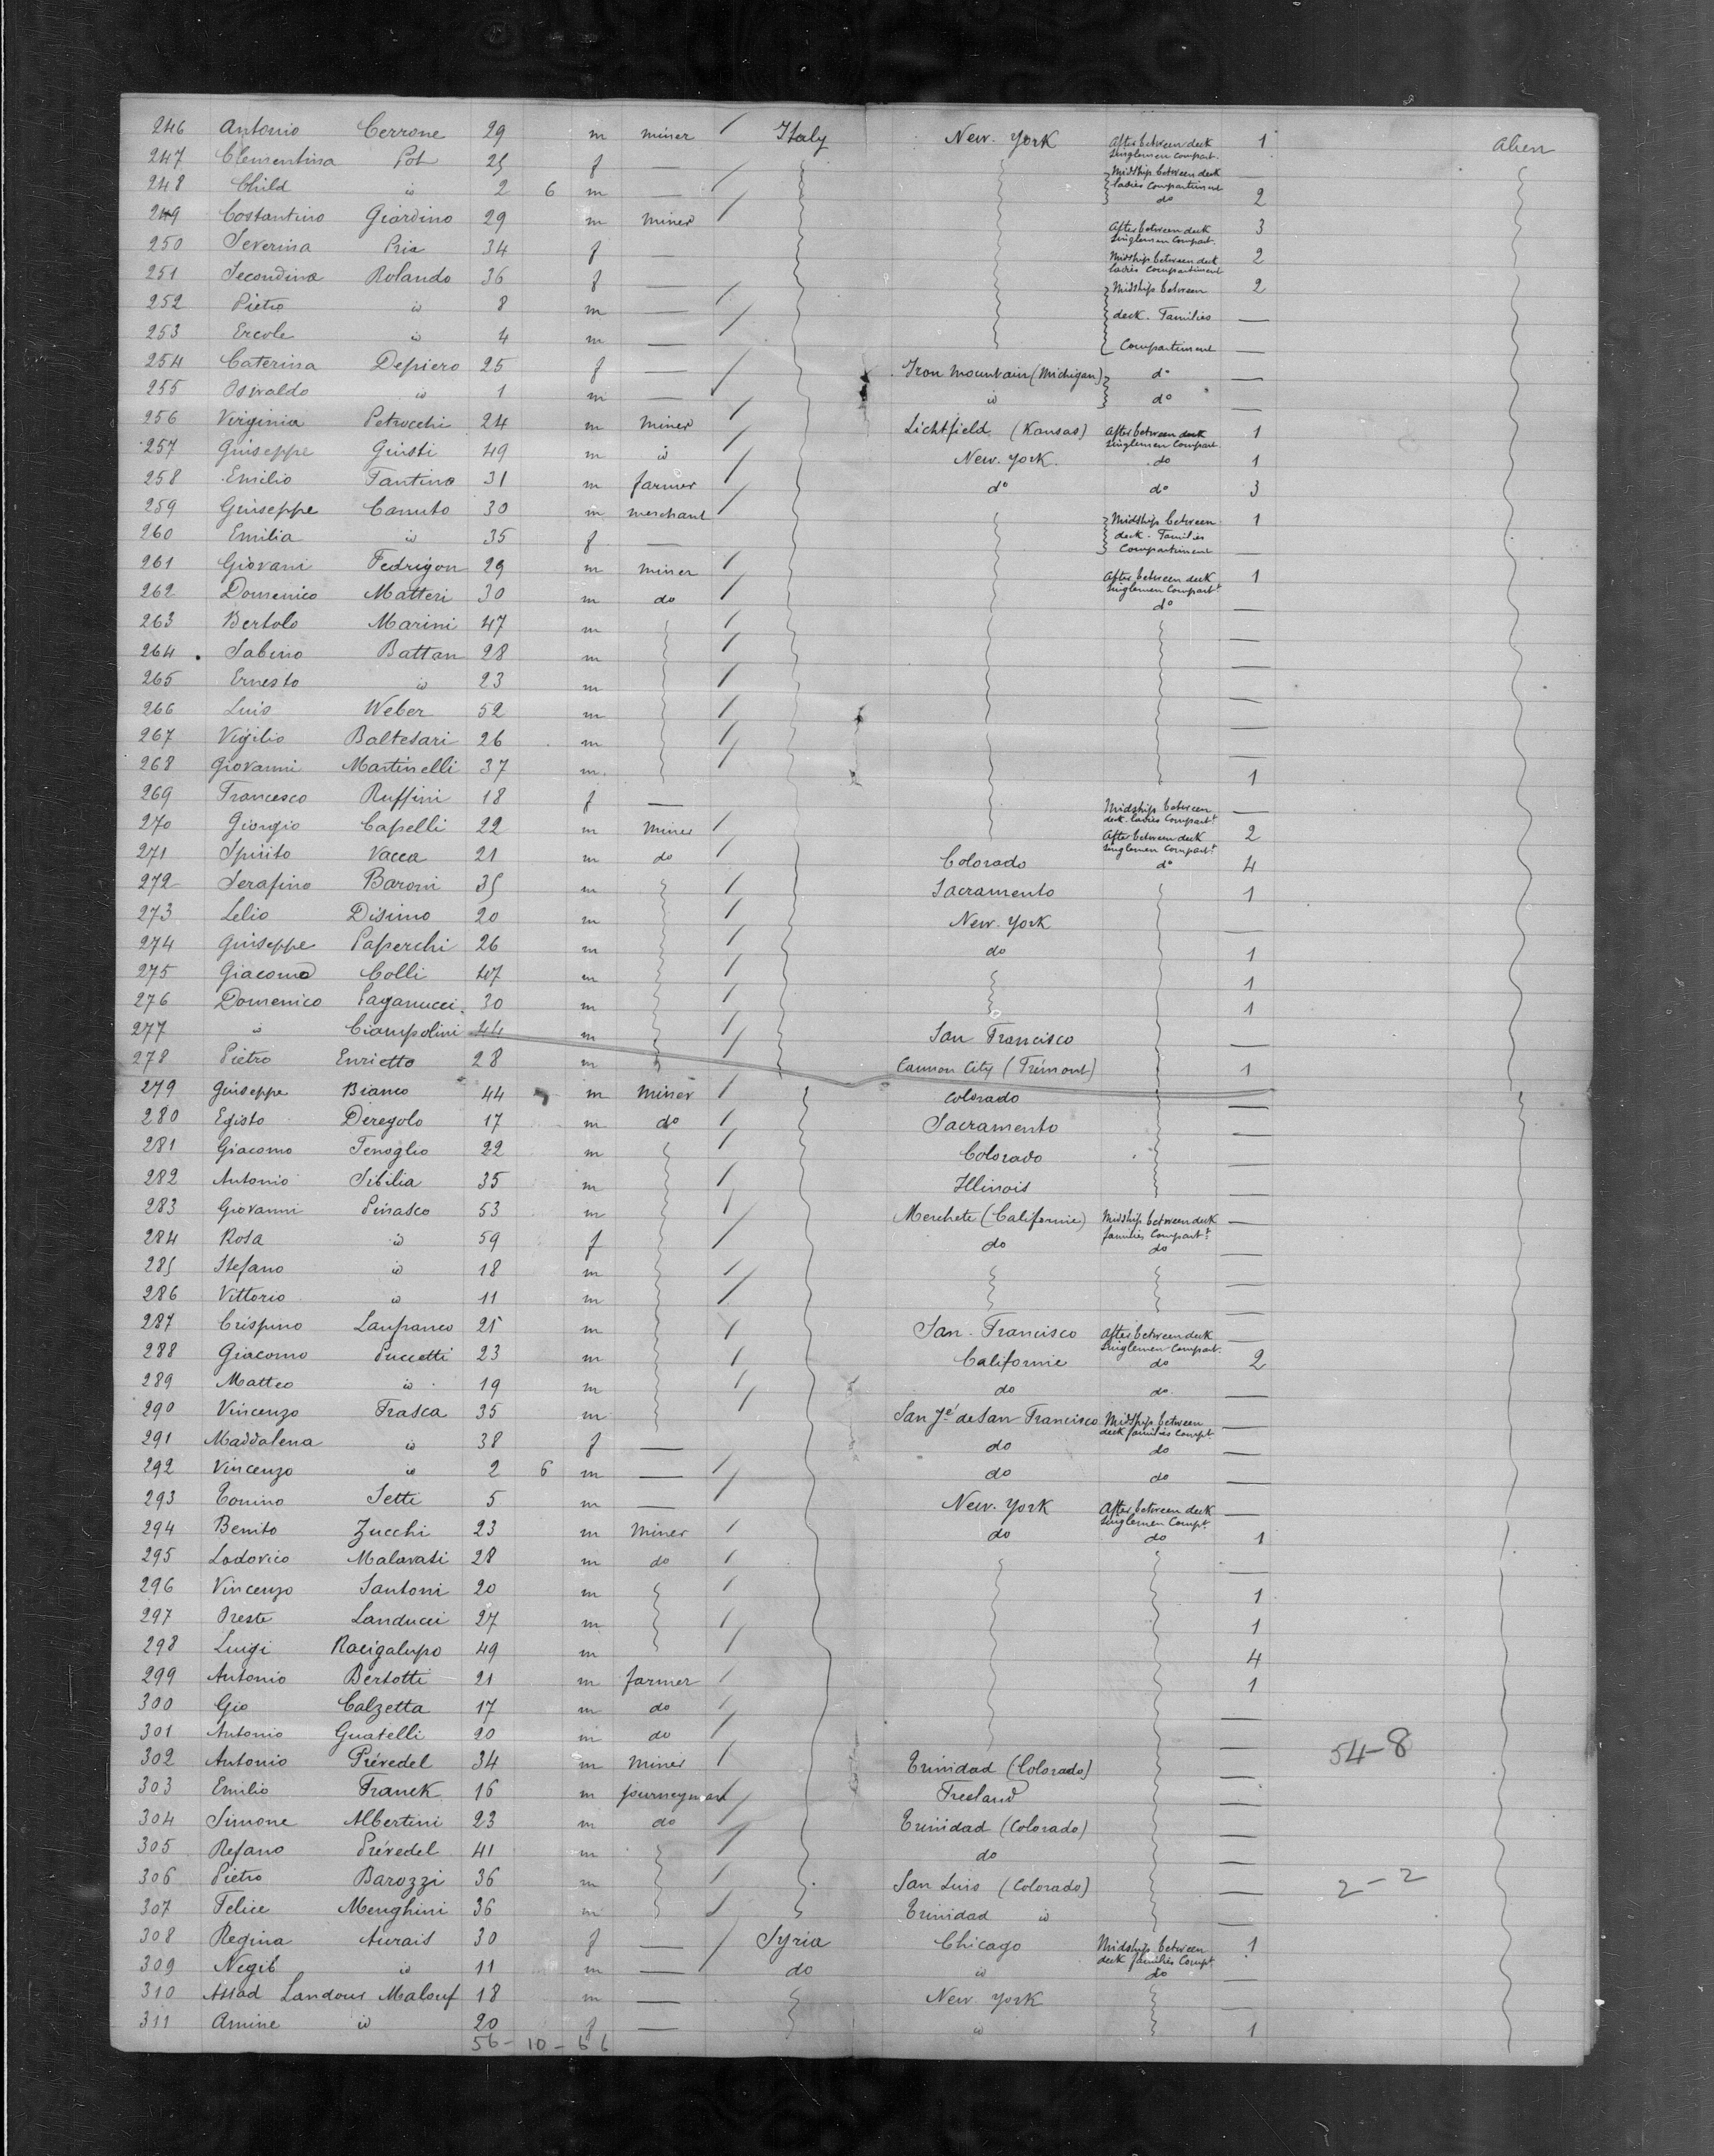 246 Antonio Cerrone 29 m miner / Italy New. York After between deck Singlemen Compart. 1 alien
247 Clementina Pot 25 f — /  Midship between deck —
248 Child id 2 6 m — / ladies Compartiment do 2
249 Costantino Giardino 29 m miner / After between deck Singlemen Compart. 3
250 Severina Pria 34 f — Midship between deck ladies Compartiment 2
251 Secondina Rolando 36 f — Midship between 2
252 Pietro id 8 m — / deck. Families —
253 Ercole id 4 m — / Compartiment —
254 Caterina Depiero 25 f — / Iron Mountain (Michigan) do —
255 Osvaldo id 1 m — / id do —
256 Virginia Petrocchi 24 m miner / Lichtfield (Kansas) After between deck Singlemen Compart. 1
257 Giuseppe Giusti 49 m id / New. York. do 1
258 Emilio Fantino 31 m farmer / do do 3
259 Giuseppe Canuto 30 m merchant / Midship between 1
260 Emilia id 35 f — deck. Families Compartiment —
261 Giovani Fedrigon 29 m miner / After between deck Singlemen Compartt 1
262 Domenico Matteri 30 m do / do —
263 Bertolo Marini 47 m / —
264 Sabino Battan 28 m / —
265 Ernesto id 23 m / —
266 Luis Weber 52 m / —
267 Vigilio Baltesari 26 m / —
268 Giovanni Martinelli 37 m. / 1
269 Francesco Ruffini 18 f — Midship between deck. ladies Compartt —
270 Giorgio Capelli 22 m miner / After between deck Singlemen Compartt 2
271 Spirito Vacca 21 m do / Colorado do 4
272 Serafino Baroni 35 m / Sacramento 1
273 Lelio Disimo 20 m / New. York —
274 Giuseppe Paperchi 26 m / do 1
275 Giacomo Colli 47 m / 1
276 Domenico Paganucci 30 m / 1
277 id Ciampolini 44 m / San Francisco —
278 Pietro Enrietto 28 m / Cannon City (Frémont) 1
279 Giuseppe Bianco 44 m miner / Colorado —
280 Egisto Deregolo 17 m do / Sacramento —
281 Giacomo Fenoglio 22 m / Colorado —
282 Antonio Sibilia 35 m / Illinois —
283 Giovanni Pinasco 53 m / Merchete (Californie) Midship between deck families Compartt —
284 Rosa id 59 f / do do —
285 Stefano id 18 m / —
286 Vittorio id 11 m / —
287 Crispino Lanfranco 25 m / San. Francisco After between deck Singlemen Compart. —
288 Giacomo Puccetti 23 m / Californie do 2
289 Matteo id 19 m / do do —
290 Vincenzo Frasca 35 m / San Jé de San Francisco Midship between deck families Compt —
291 Maddalena id 38 f — do do —
292 Vincenzo id 2 6 m — / do do —
293 Tonino Setti 5 m — / New. York After between deck Singlemen Compt. —
294 Benito Zucchi 23 m miner / do do 1
295 Lodovico Malavasi 28 m do / —
296 Vincenzo Santoni 20 m / 1
297 Oreste Landucci 27 m / 1
298 Luigi Racigalupo 49 m / 4
299 Antonio Bertotti 21 m farmer / 1
300 Gio Calzetta 17 m do / —
301 Antonio Guatelli 20 m do / — 54-8
302 Antonio Prévedel 34 m miner / Trinidad (Colorado) —
303 Emilio Franek 16 m journeyman / Freeland —
304 Simone Albertini 23 m do / Trinidad (Colorado) —
305 Refano Prévedel 41 m / do —
306 Pietro Barozzi 36 m / San Luis (Colorado) — 2-2
307 Felice Menghini 36 m / Trinidad id —
308 Regina Aurais 30 f — / Syria Chicago Midship between deck families Compt 1
309 Negib id 11 m — do id do —
310 Assad Landous Malouf 18 m — New York —
311 Amine id 20 f — id 1
56-10-66